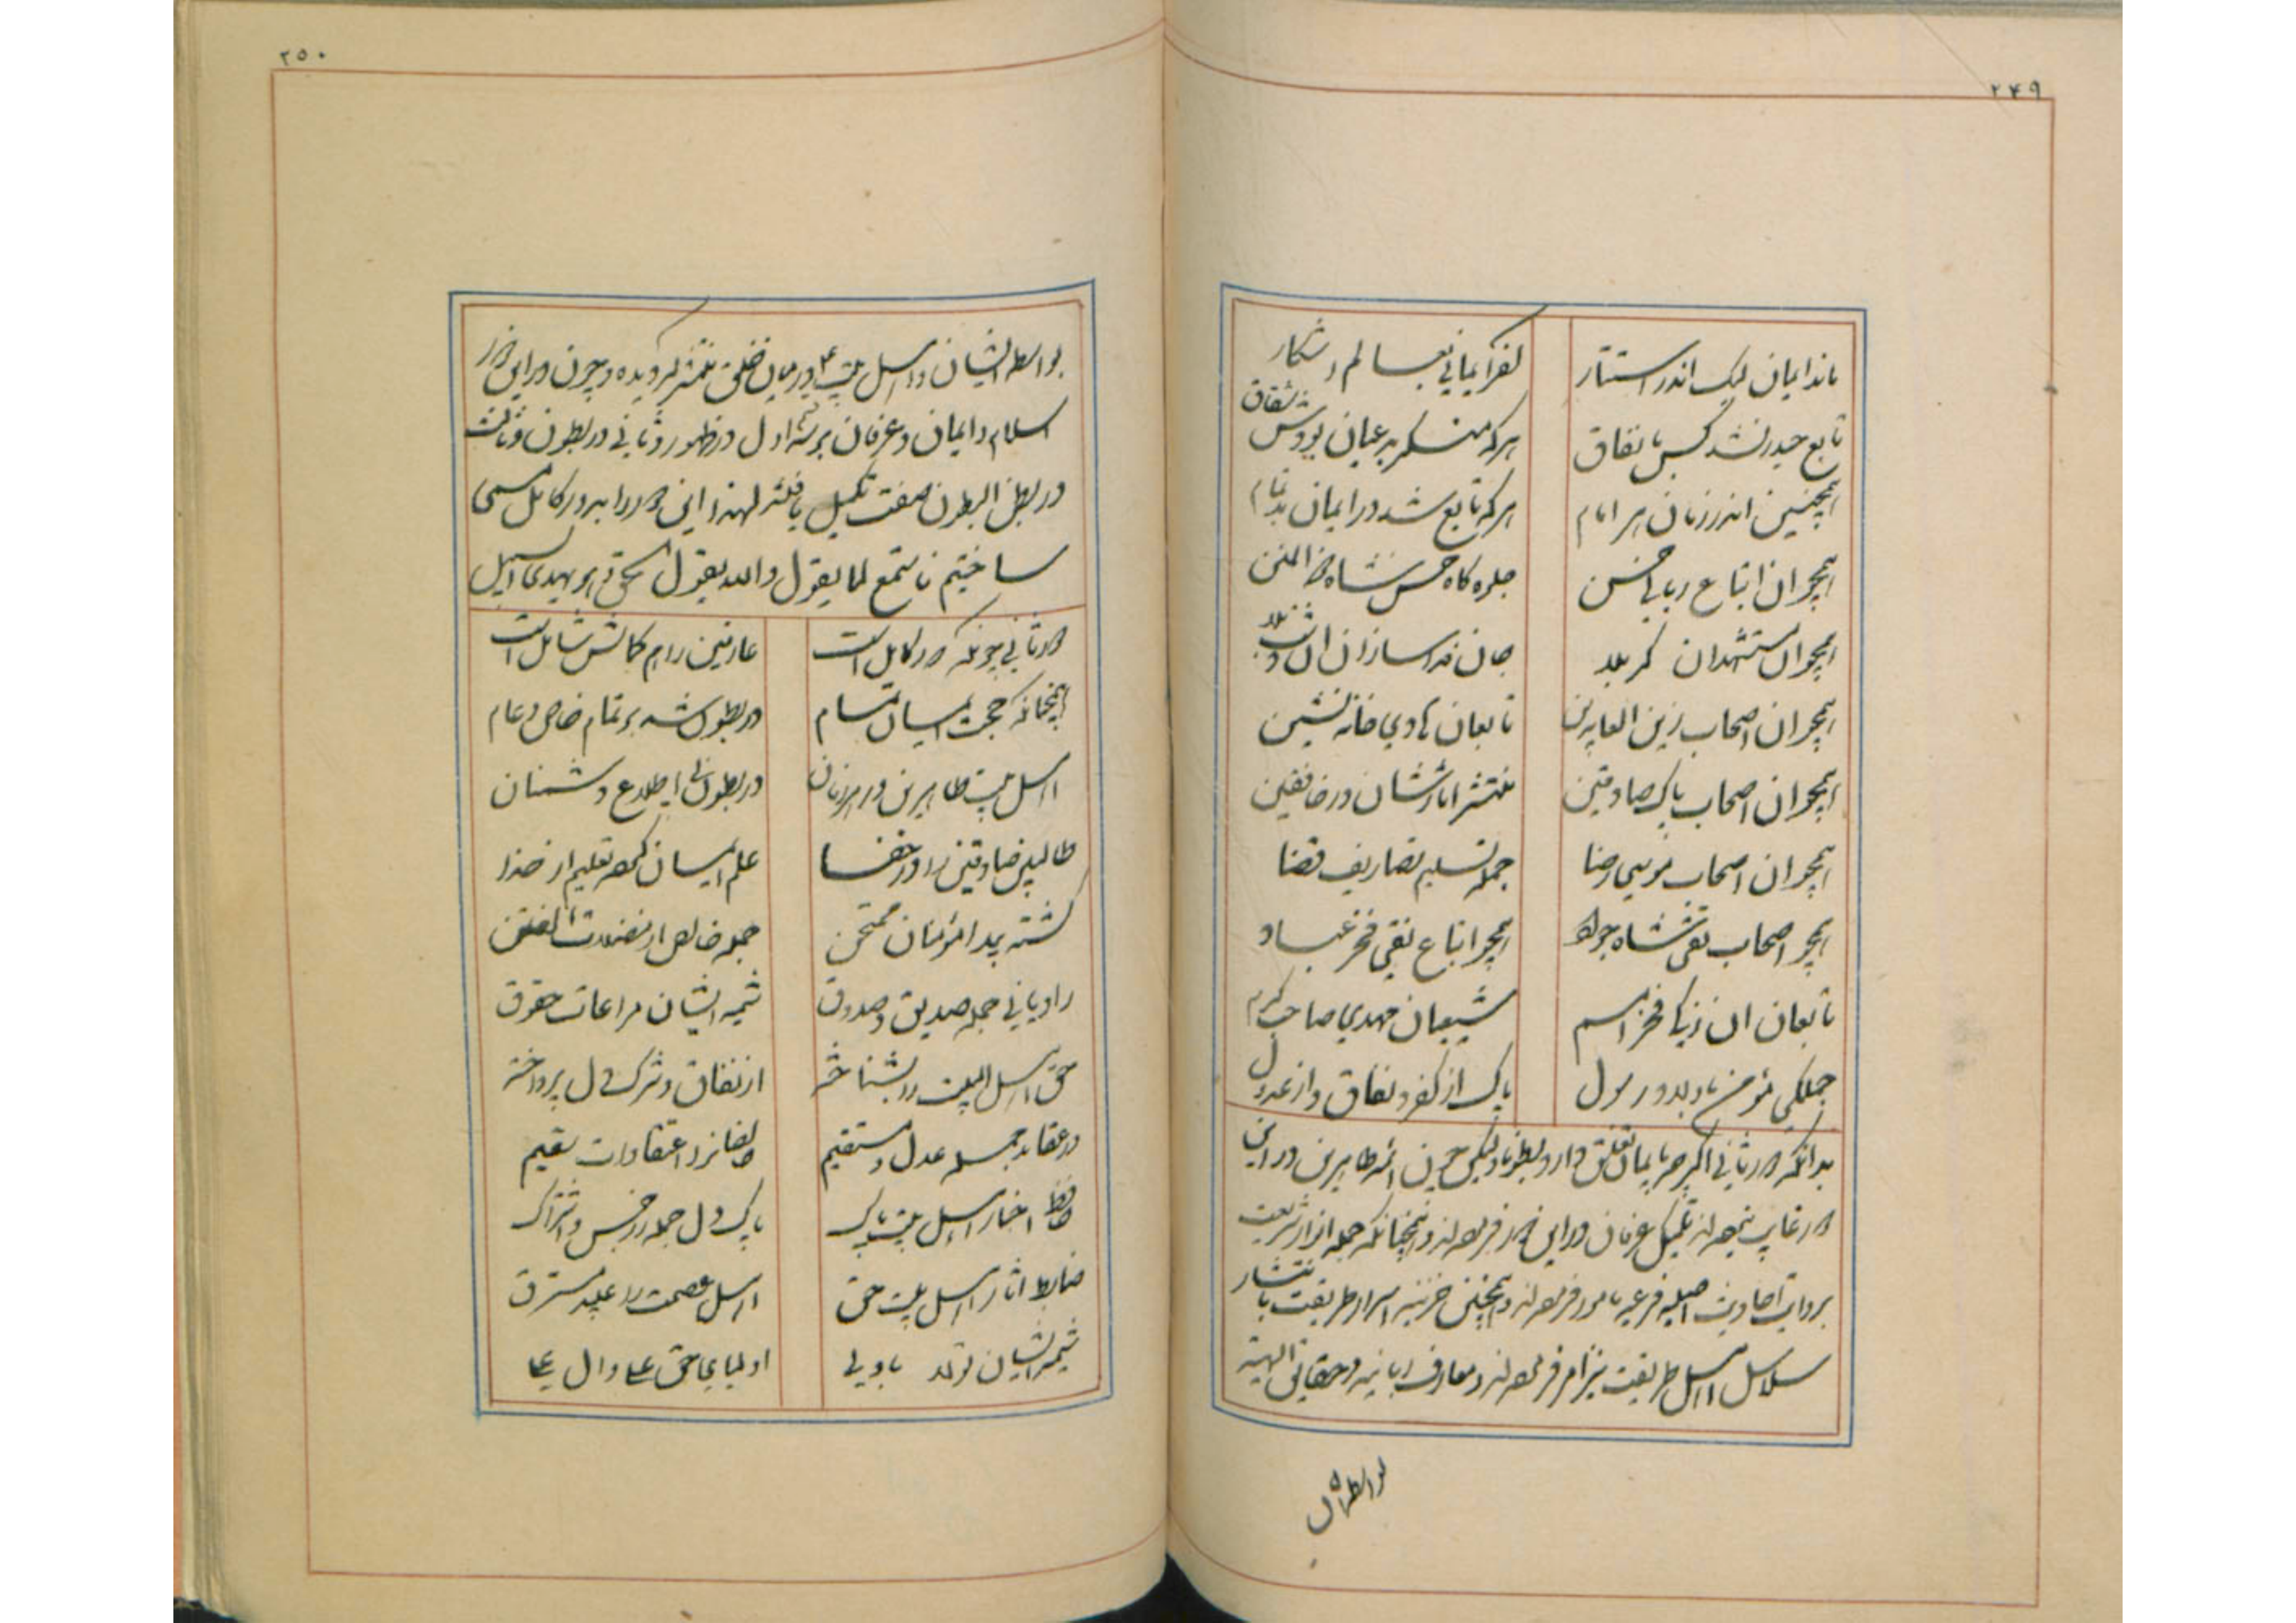 ۲۴۹
ماند ایمان لیک اندر استتار
کفر ایمانی بعالم آشکار
تابع حیدر نشد کس با نفاق
هرکه منکر بد عیان بودش شقاق
همچنین اندر زمان هر امام
هرکه تابع شد در ایمان بد تمام
همچو ان اتباع ربانی حسن
جلوه کاه حسن شاه ذو المنن
همچو ان مستشهدان کربلا
جان فدا سازان ان
همچو ان اصحاب زین العابدین
تابعان هادی خانه نشین
همچو ان اصحاب پاک صادقین
منتشر اثارشان در خافقین
همچو ان اصحاب موسی رضا
جمله تسلیم تصاریف قضا
همچو اصحاب تقی شاه جواد
همچو اتباع نقی فخر عباد
تابعان ان زکی فخر امم
شیعیان مهدی صاحب کرم
جملکی مؤمن باو بد و رسول
پاک از کفر و نفاق و از عدول
بدانکه دور ثانی اکرچه بایمان تعلق دارد و بطونا ولیکن چون ائمه طاهرین در این
دور غایب نبوده‌اند تکمیل عرفان در این دور فرموده‌اند و همچنانکه جمله انوار شریعت
بروایت احادیث اصلیه فرعیه مامور فرموده‌اند و همچنین خزینه اسرار طریقت بانتشار
سلاسل اهل طریقت نیز امر فرموده‌اند و معارف ربانیه و حقایق الهیه
بواسطه ایشان
۲۵۰
بواسطه ایشان و اهل بیت ع در میان خلق منتشر کردیده و چون در این دور
اسلام و ایمان و عرفان هر سه اول در ظهور و ثانی در بطون و ثالث
در بطن البطون صفت تکمیل یافتند لهذا این دور را بدور کامل مسمی
ساختیم فاستمع لما یقول والله یقول الحق و هو یهدی السبیل
دور ثانی چونکه دور کامل است
عارفین را هم کمالش شامل است
همچنانکه حجت ایمان تمام
در بطون شد بر تمام خاص و عام
اهل بیت طاهرین در هر زمان
در بطون بی اطلاع دشمنان
طالبین صادقین را در خفا
علم ایمان کرده تعلیم از خدا
کشته پیدا مؤمنان ممتحن
جمله خالص از مضلات الفتن
راویانی جمله صدیق و صدوق
شیمه ایشان مراعات حقوق
حق اهل البیت را بشناخته
از نفاق و شرک دل پرداخته
در عقاید جمله عدل و مستقیم
صافی از اعتقادات سقیم
حافظ اخبار اهل بیت پاک
پاک دل جمله ز رجس و اشتراک
ضابط اثار اهل بیت حق
اهل عصمت را عبید مسترق
شیمه ایشان تولا با ولی
اولیای حق علی و ال علی